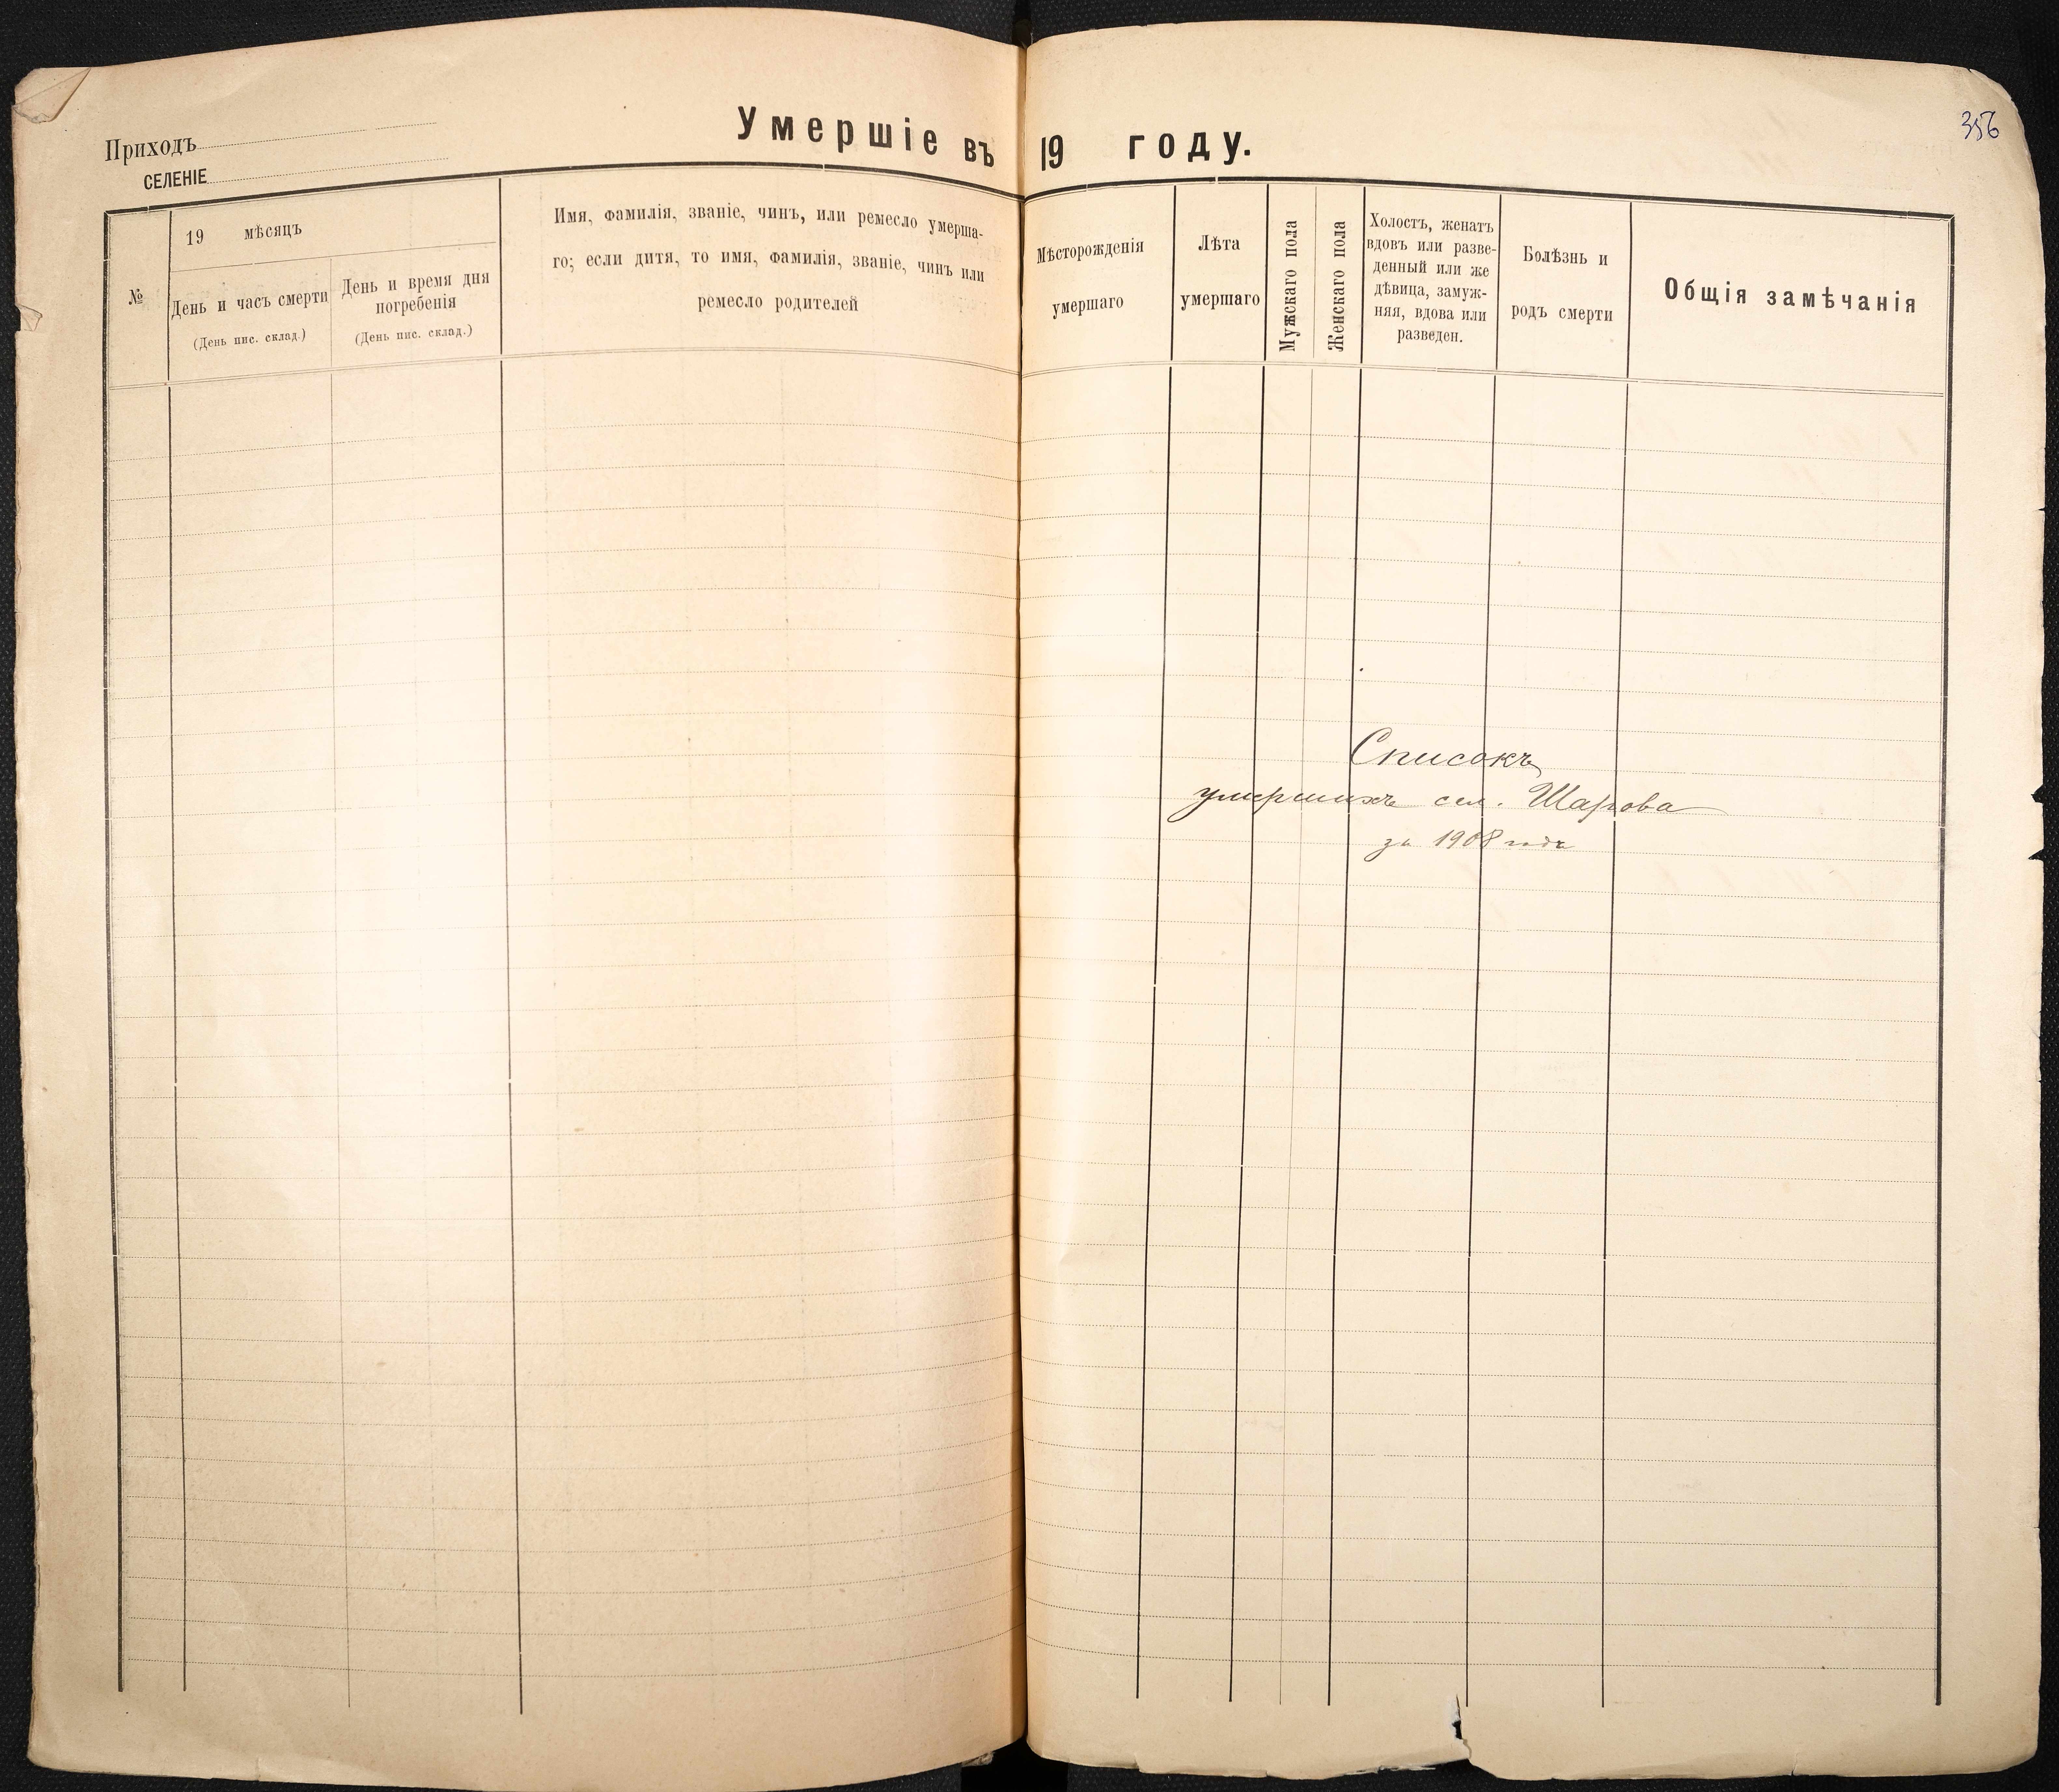 356
Умершіе въ 19 году.
Приходъ
СЕЛЕНІЕ
№
19 мѣсяцъ
День и часъ смерти
(День пис. склад.)
День и время дня
погребенія
(День пис. склад.)
Имя, фамилія, званіе, чинъ, или ремесло умерша-
го; если дитя, то имя, фамилія, званіе, чинъ или
ремесло родителей
Мѣсторожденія
умершаго
Лѣта
умершаго
Мужскаго пола
Женскаго пола
Холостъ, женатъ
вдовъ или разве-
денный или же
дѣвица, замуж-
няя, вдова или
разведен.
Болѣзнь и
родъ смерти
Общія замѣчанія
Списокъ
умершихъ сел. Шарова
за 1908 годъ